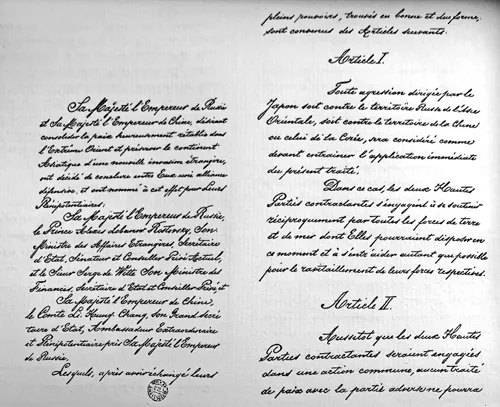 Sa Majesté l'Empereur de Russie
et Sa Majesté l'Empereur de Chine, désirant
consolider la paix heureusement rétablie dans
l'Extrême Orient et préserver le continent
Asiatique d'une nouvelle invasion étrangère,
ont décidé de conclure entre Eux une alliance
défensive, et ont nommé à cet effet pour Leurs
Plénipotentiaires:
Sa Majesté l'Empereur de Russie,
le Prince Alexis Lobanow Rostovsky, Son
Ministre des Affaires Etrangères, Secrétaire
d'Etat, Sénateur et Conseiller Privé Actuel,
et le Sieur Serge de Witte, Son Ministre des
Finances, Secrétaire d'Etat et Conseiller Privé, et
Sa Majesté l'Empereur de Chine,
le Comte Li Hung Chang, Son Grand Secré
taire d'Etat, Ambassadeur Extraordinaire
et Plénipotentiaire près Sa Majesté l'Empereur
de Russie.
Lesquels, après avoir échangé leurs
pleins pouvoirs, trouvés en bonne et due forme,
sont convenus des Articles suivants.
Article I.
Toute agression dirigée par le
Japon soit contre le territoire Russe de l'Asie
Orientale, soit contre le territoire de la Chine
ou celui de la Corée, sera considéré comme
devant entraîner l'application immédiate
du présent traité.
Dans ce cas, les deux Hautes
Parties contractantes s'engagent à se soutenir
réciproquement par toutes les forces de terre
et de mer dont Elles pourraient disposer en
ce moment et à s'entr'aider autant que possible
pour le ravitaillement de leurs forces respectives.
Article II.
Aussitôt que les deux Hautes
Parties contractantes seraient engagées
dans une action commune, aucun traité
de paix avec la partie adverse ne pourra